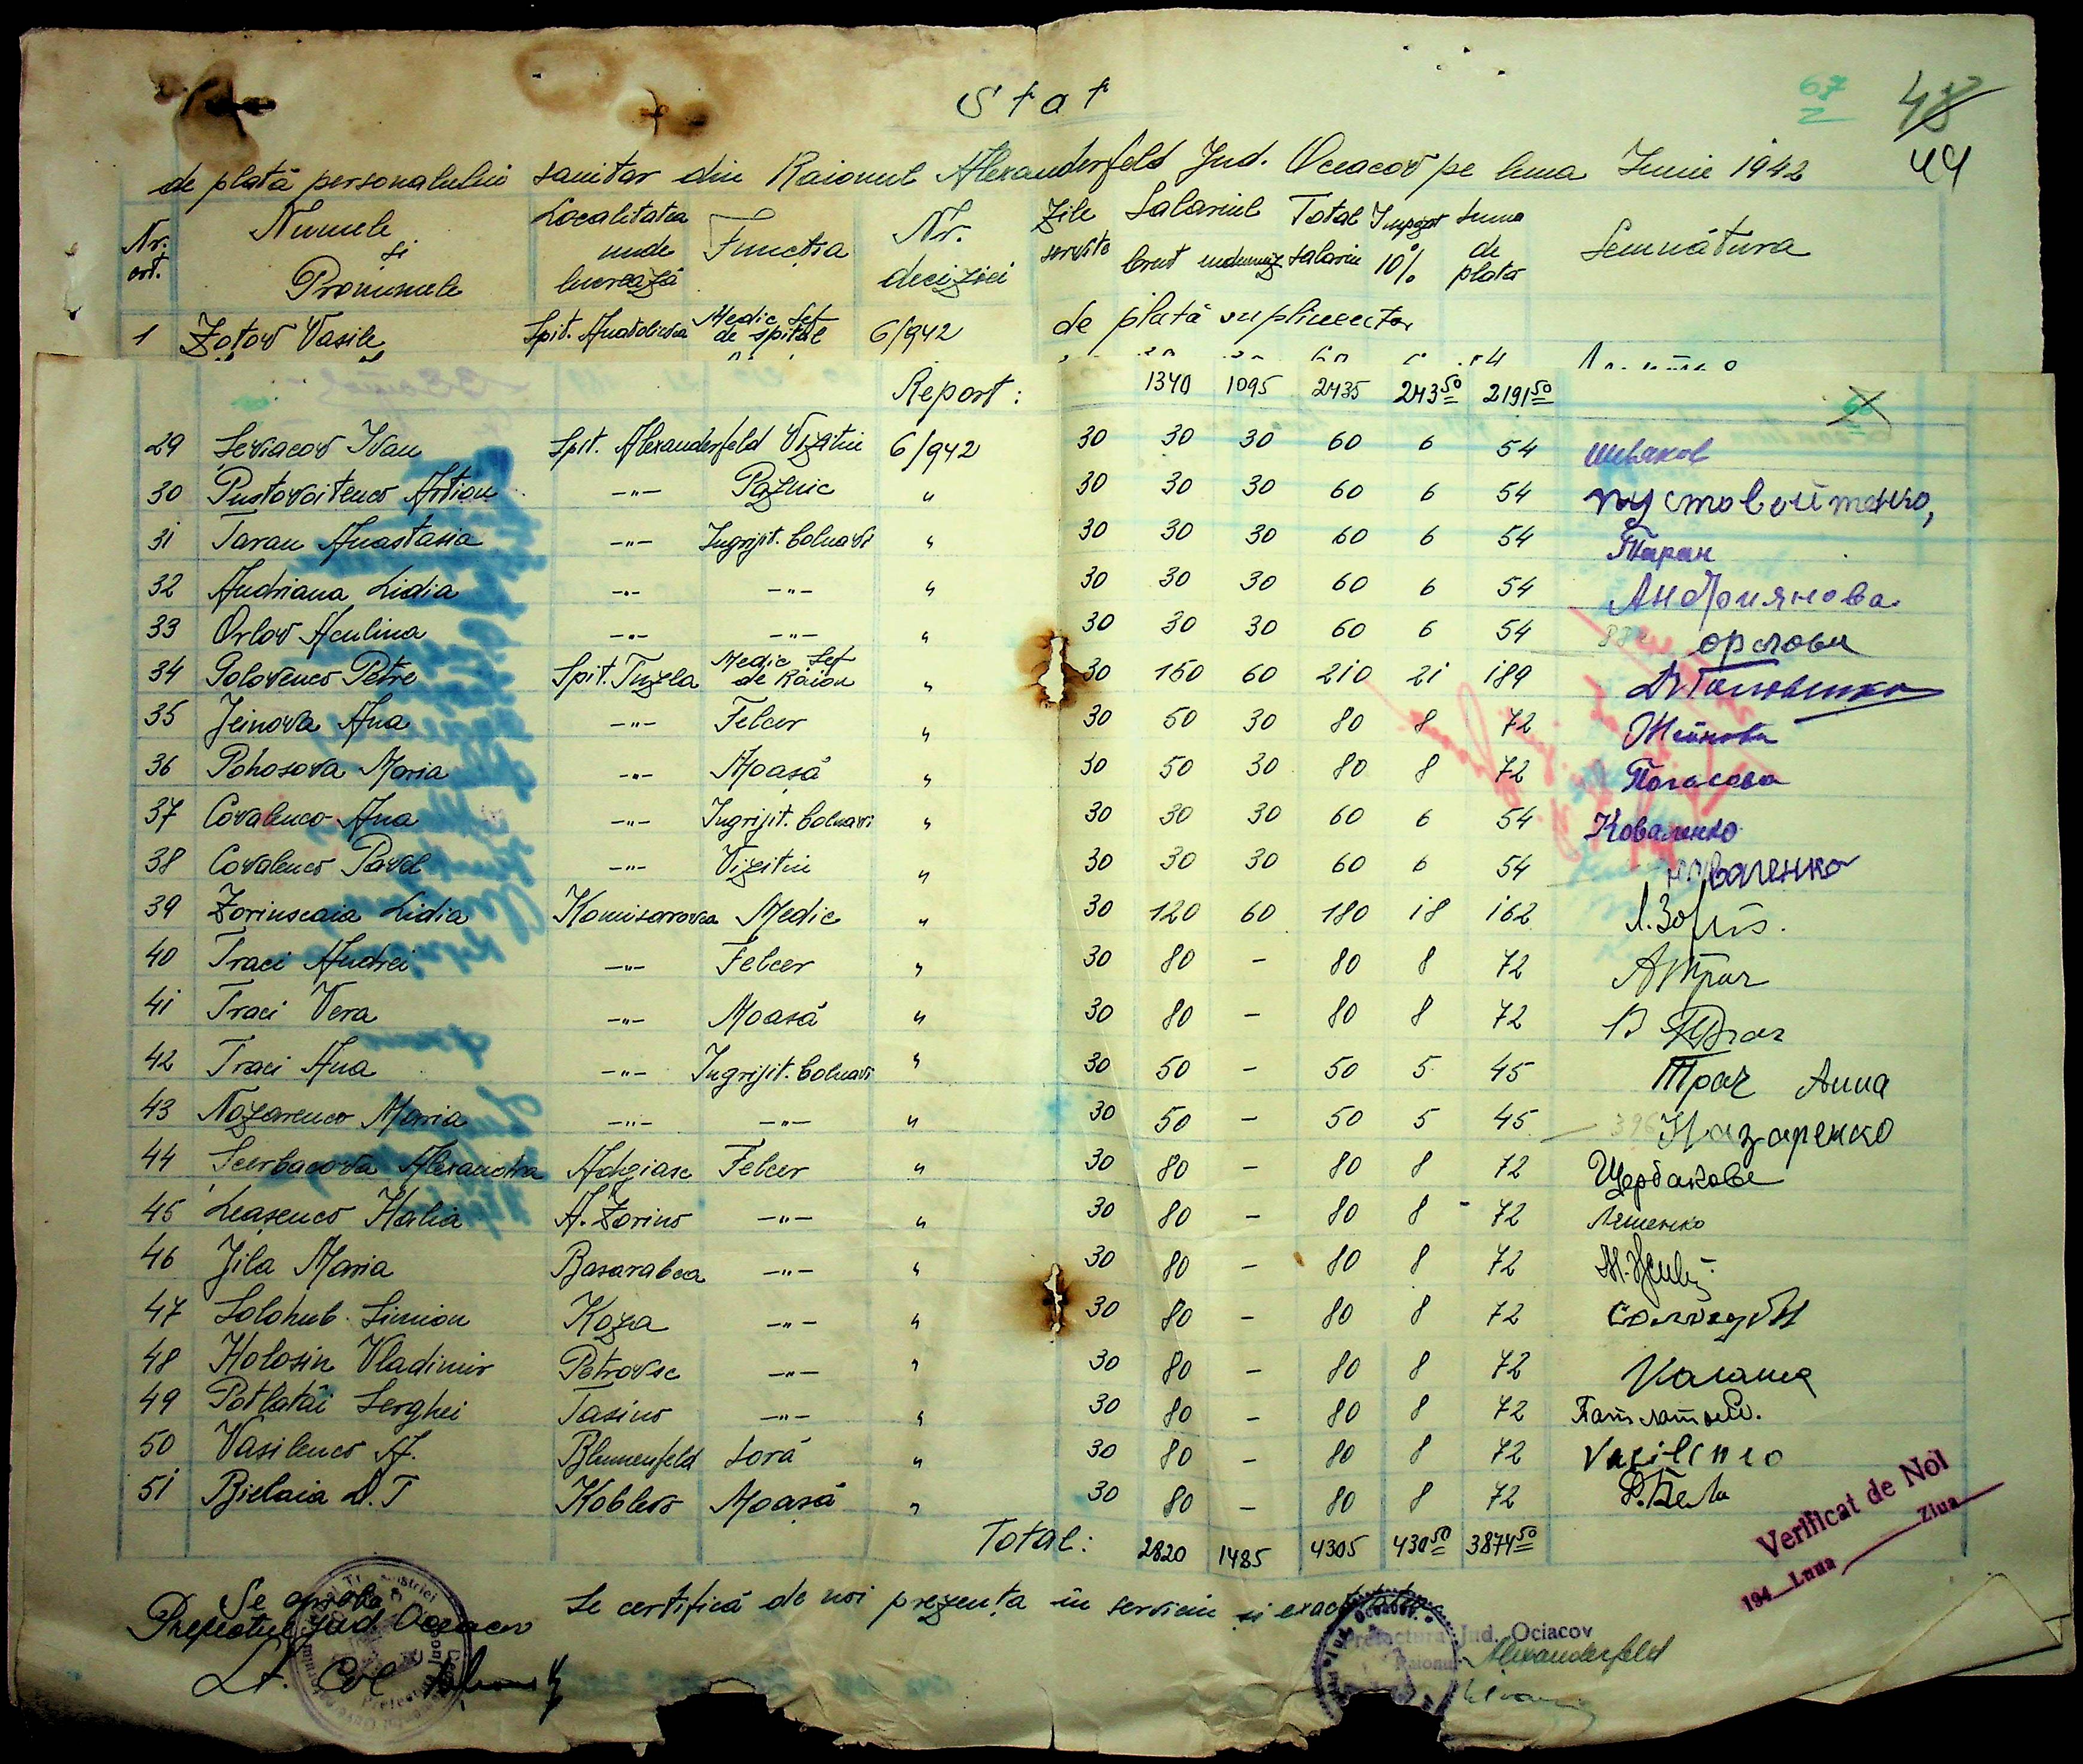 Stat
67
48
44
de plată personalului sanitar din Raionul Alexanderfeld Jud. Oceacov pe luna Iunie 1942
Nr. ort. Numele si Pronumele Localitatea unde lucrează Funcția Nr. deciziei Zile servite Salariul brut indemniz. Total salariu Impozit 10% Suma de plată Semnătura
1 Zotov Vasile Spit. Anatolievca Medic Șef de spital 6/942 de plată suplimentar
Report: 1340 1095 2435 243 50 2191 50
29 Șeviacov Ivan Spit. Alexanderfeld Vizitiu 6/942 30 30 30 60 6 54 Шевяков
30 Pustovoitenco Artion -"- Paznic " 30 30 30 60 6 54 пустовойтенко,
31 Taran Anastasia -"- Ingrijit. bolnavi " 30 30 30 60 6 54 Таран
32 Andriana Lidia -"- -"- " 30 30 30 60 6 54 Андриянова
33 Orlov Aculina -"- -"- " 30 30 30 60 6 54 орлова
34 Golovenco Petre Spit. Tuzla Medic Șef de Raion " 30 150 60 210 21 189
35 Jeinova Ana -"- Felcer " 30 50 30 80 8 72 Жейнова
36 Pohosova Maria -"- Moașă " 30 50 30 80 8 72 Погасова
37 Covalenco Ana -"- Ingrijit. bolnavi " 30 30 30 60 6 54 Коваленко
38 Covalenco Pavel -"- Vizitiu " 30 30 30 60 6 54 коваленко
39 Zorinscaia Lidia Komisarovca Medic " 30 120 60 180 18 162
40 Traci Andrei -"- Felcer " 30 80 - 80 8 72 А Трач
41 Traci Vera -"- Moașă " 30 80 - 80 8 72 В Трач
42 Traci Ana -"- Ingrijit. bolnavi " 30 50 - 50 5 45 Трач Анна
43 Nazarenco Maria -"- -"- " 30 50 - 50 5 45 Назаренко
44 Scerbacova Alexandra Adgiasc Felcer " 30 80 - 80 8 72 Щербакова
45 Leașenco Halia A. Zorino -"- " 30 80 - 80 8 72 Ляшенко
46 Jila Maria Basarabca -"- " 30 80 - 80 8 72
47 Solohub Simion Koza -"- " 30 80 - 80 8 72 Сологуб
48 Holosin Vladimir Petrovsc -"- " 30 80 - 80 8 72
49 Potlatâi Serghei Tasino -"- " 30 80 - 80 8 72
50 Vasilenco A. Blumenfeld Soră " 30 80 - 80 8 72 Vasilenco
51 Bielaia D.T Koblevo Moașă " 30 80 - 80 8 72
Total: 2820 1485 4305 430 50 3874 50
Verificat de Noi
194 Luna Ziua
Se aproba
Prefectul Jud. Oceacov
Lt. Col
Se certifică de noi prezența în serviciu și exactitatea
Prefectura Jud. Ociacov
Raionul Alexanderfeld